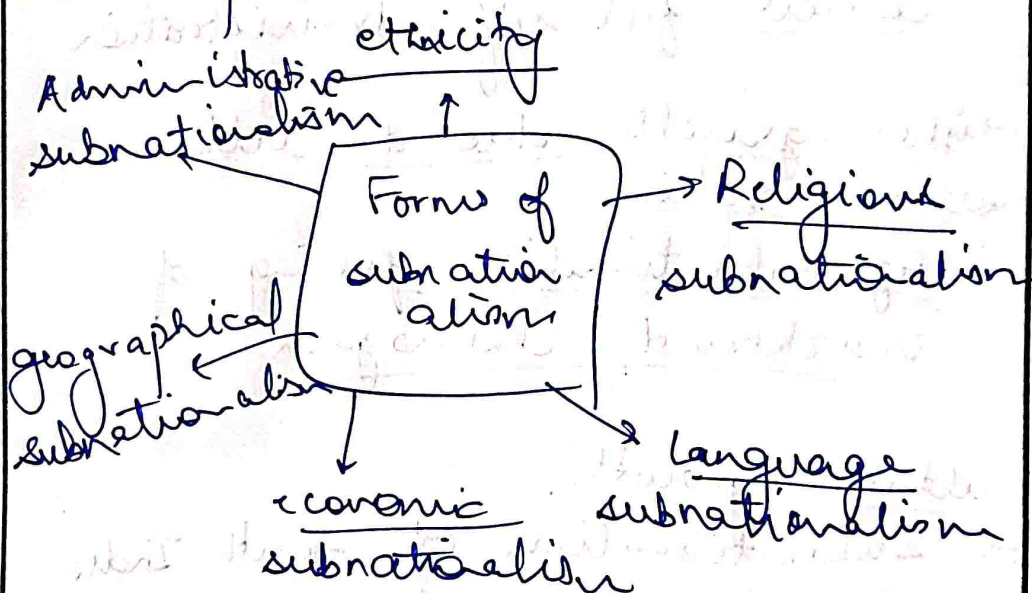 ethnicity
Administrative
subnationalism
Forms of
subnation
alism
Religious
subnationalism
geographical
subnationalism
Language
subnationalism
economic
subnationalism